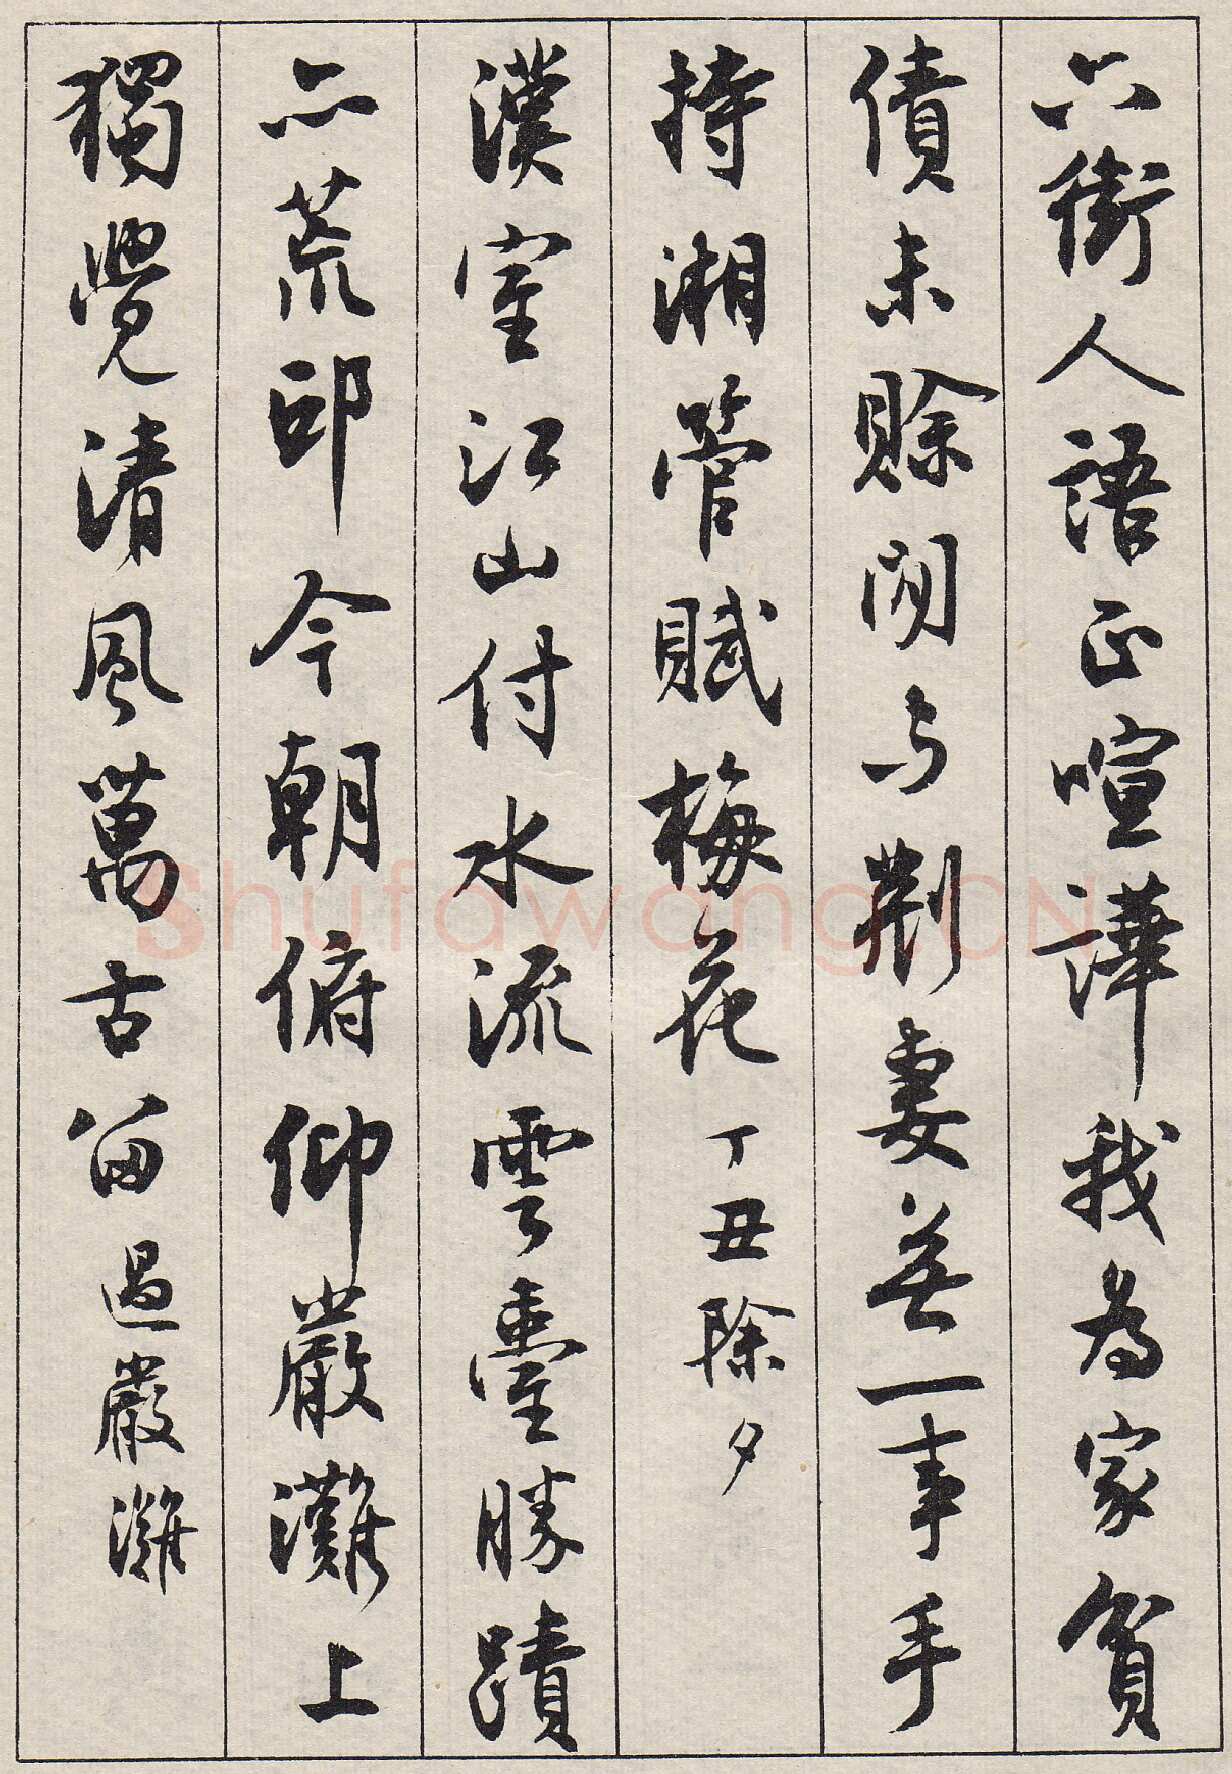 六街人語正喧譁我為家貧
債未賒閒与荆妻無一事手
持湘管賦梅花丁丑除夕
漢室江山付水流雲臺勝蹟
亦荒邱今朝俯仰嚴灘上
獨覺清風萬古留過嚴灘
Shufawang.CN